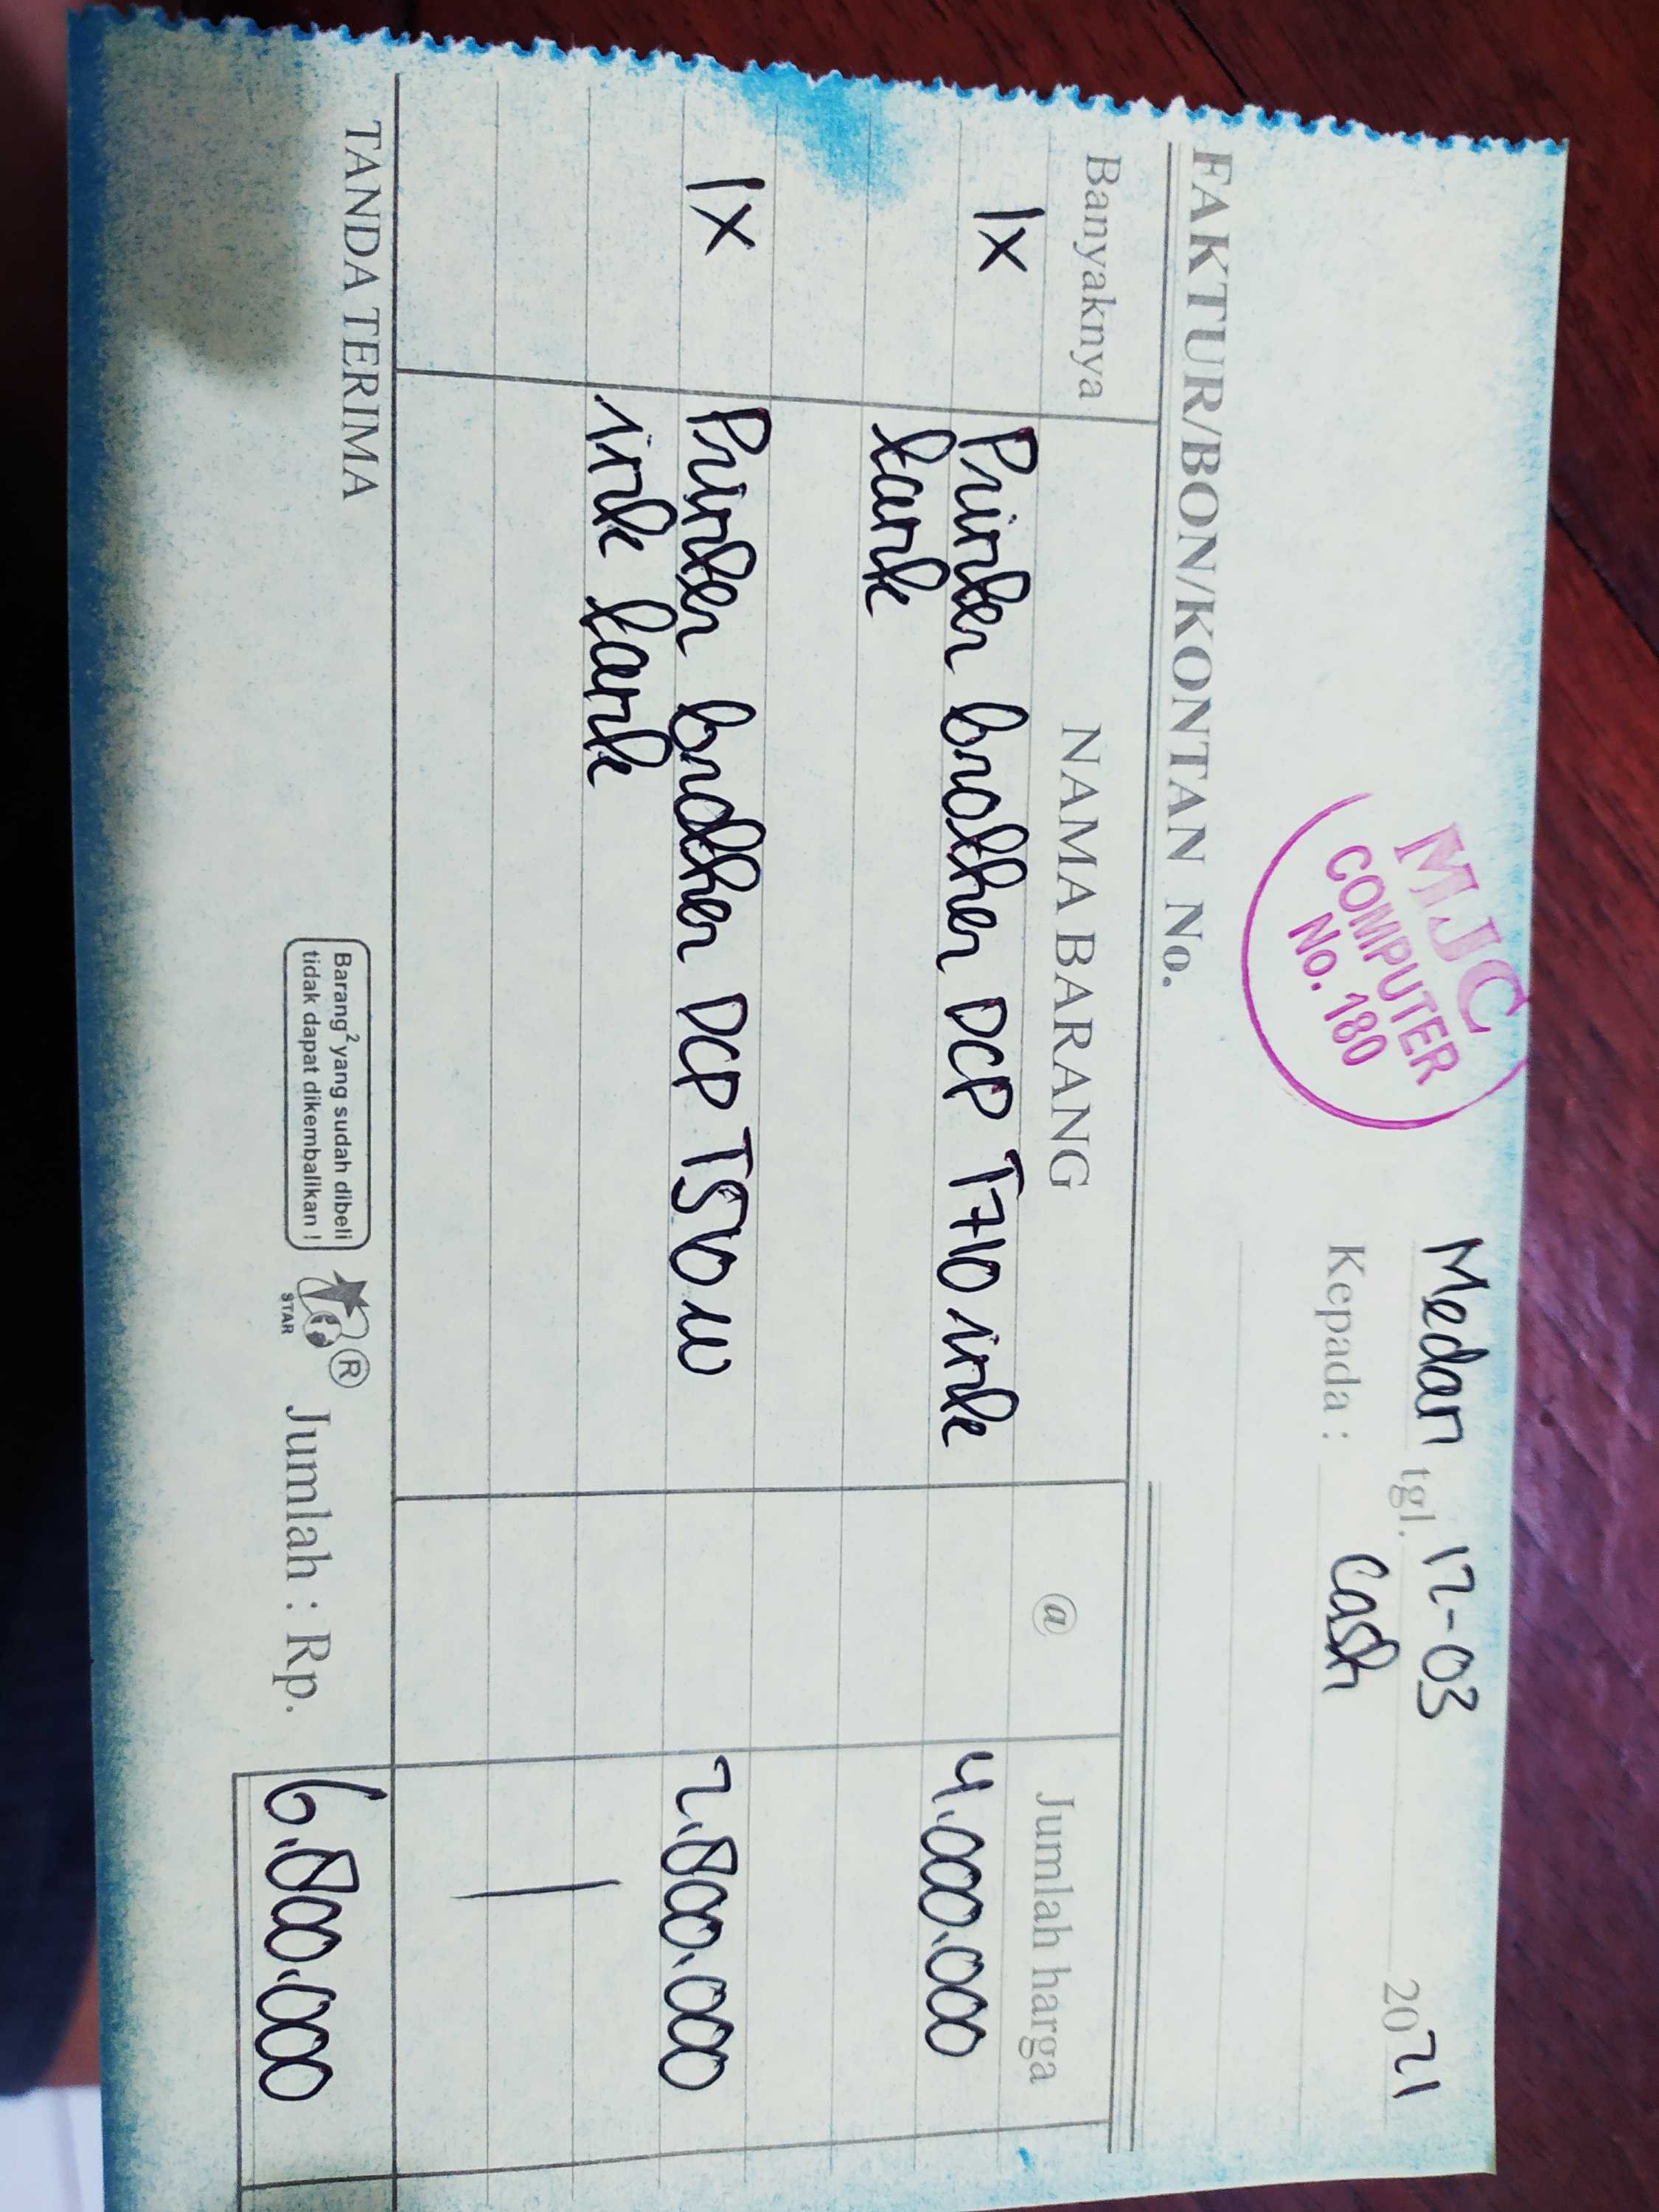 MJC
COMPUTER
No. 180
Medan tgl. 12-03 2021
Kepada : Cash
FAKTUR/BON/KONTAN No.
Banyaknya NAMA BARANG @ Jumlah harga
1x Printer brother DCP T710 ink 4.000.000
tank
1x Printer brother DCP T510 W 2.800.000
ink tank
TANDA TERIMA
Barang2 yang sudah dibeli
tidak dapat dikembalikan !
STAR
®
Jumlah : Rp. 6.800.000